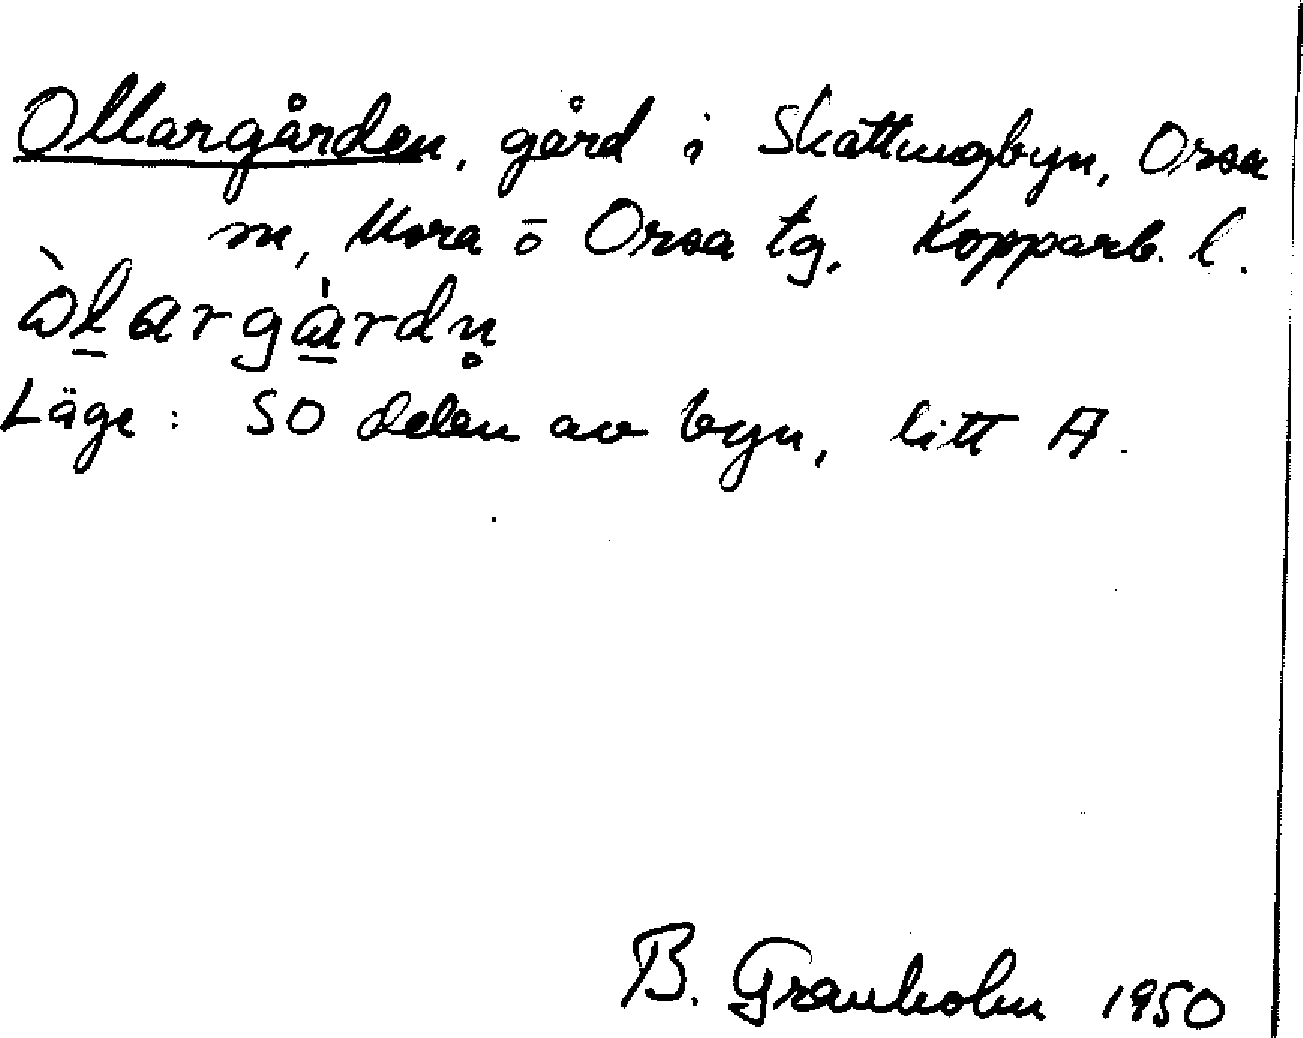 Ollargården, gård i Skattungbyn, Orsa
m, Mora o Orsa tg. Kopparb. l.
òlargàrdn̥
Läge: SO delen av byn, litt A.
B. Granholm 1950